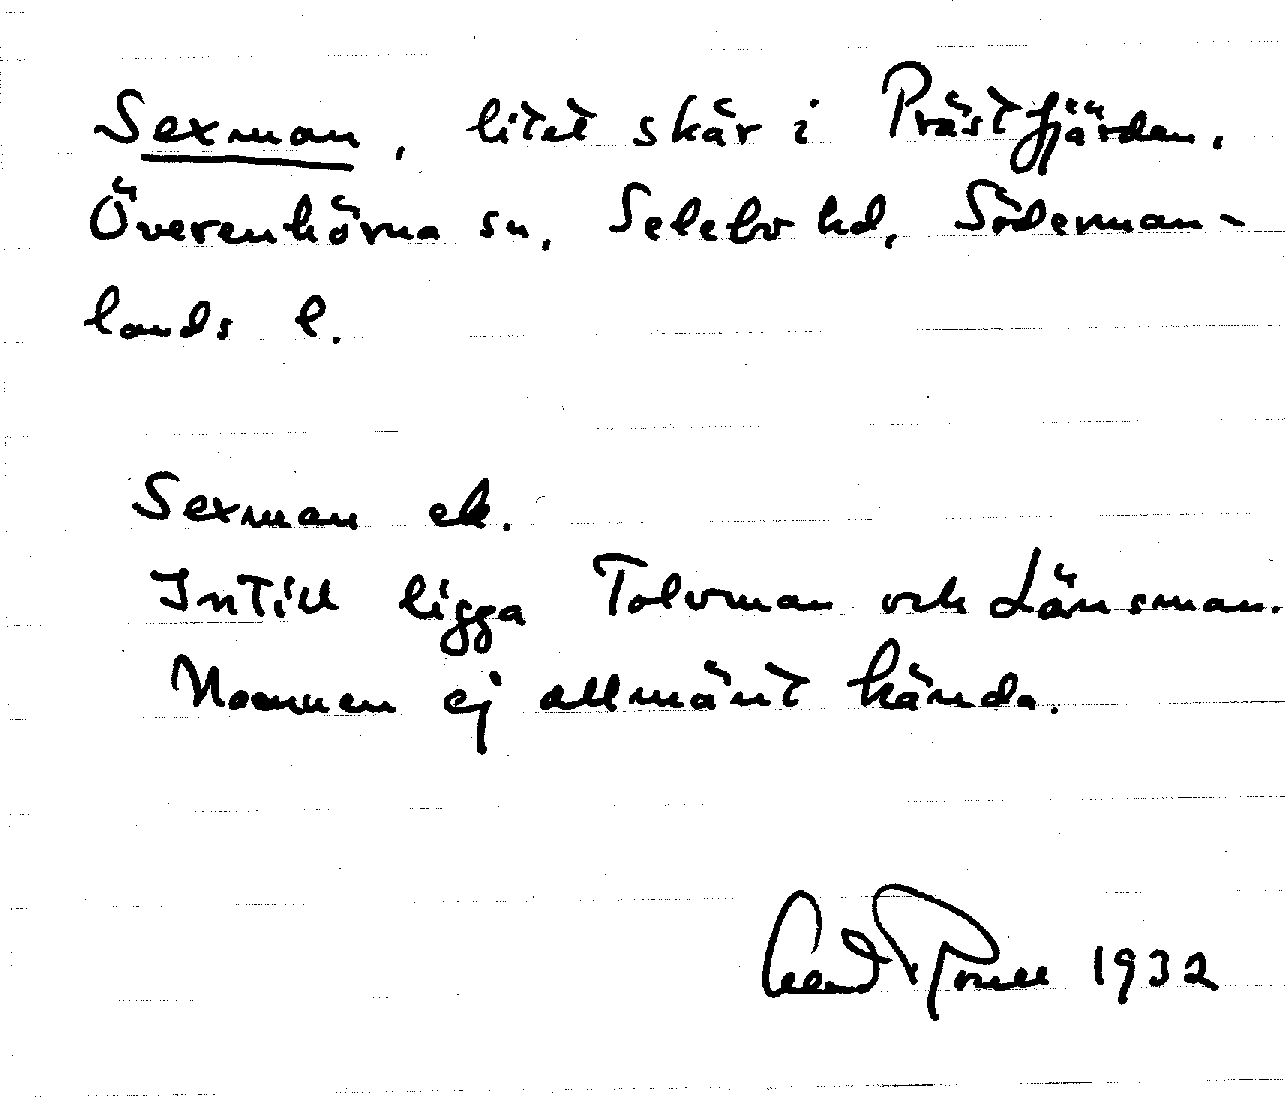 Sexman, litet skär i Prästfjärden,
Överenhörna sn, Selebo hd, Söderman-
lands l.
Sexman ek.
Intill ligga Tolvman och Länsman.
Namnen ej allmänt kända.
1932